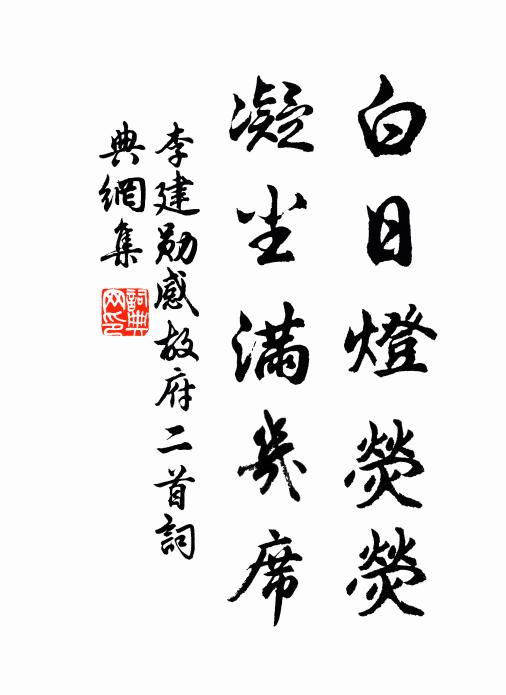 白日燈熒熒
凝尘滿幾席
李建勛感故府二首詞
典網集
詞典网印